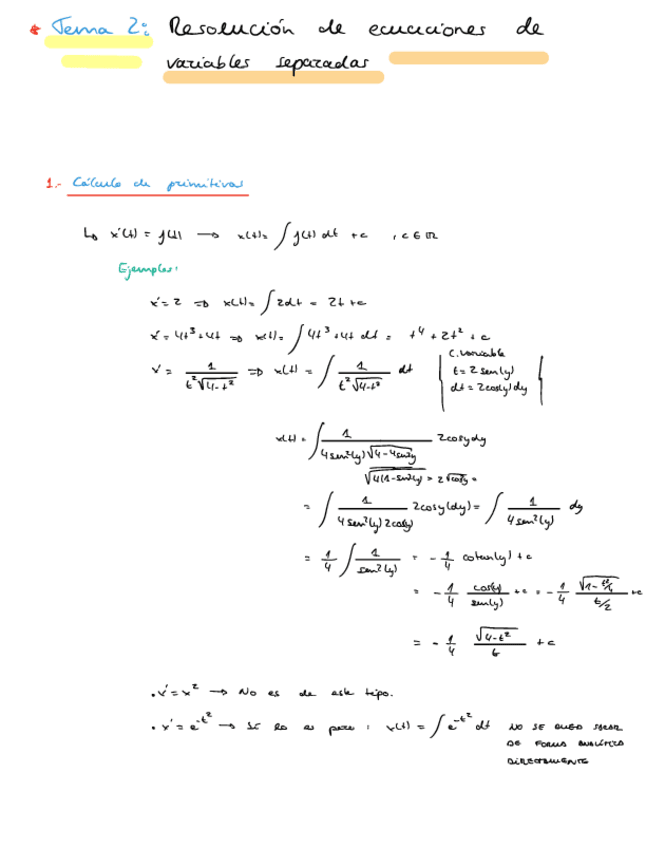 * Tema 2: Resolución de ecuaciones de
variables separadas
1.- Cálculo de primitivas
↳ x'(t) = g(t) → x(t) = ∫ g(t) dt + c , c ∈ ℝ
Ejemplos:
x' = 2 ⇒ x(t) = ∫ 2dt = 2t + c
x' = 4t³ + 4t ⇒ x(t) = ∫ 4t³ + 4t dt = t⁴ + 2t² + c
x' = 1 / (t²√(4-t²)) ⇒ x(t) = ∫ 1 / (t²√(4-t²)) dt
C. variable
t = 2 sen(y)
dt = 2cos(y) dy
x(t) = ∫ 1 / (4sen²(y)√(4-4sen²y)) 2cosy dy
√(4(1-sen²(y)) = 2√cos²y =
= ∫ 1 / (4sen²(y) 2cos(y)) 2cosy(dy) = ∫ 1 / (4sen²(y)) dy
= 1/4 ∫ 1 / (sen²(y)) = - 1/4 cotan(y) + c
= - 1/4 cos(y) / sen(y) + c = - 1/4 √(1-t²/4) / (t/2) + c
= - 1/4 √(4-t²) / t + c
• x' = x² → No es de este tipo.
• x' = e^(-t²) → Sí lo es pero : x(t) = ∫ e^(-t²) dt NO SE PUEDE SACAR
DE FORMA ANALÍTICA
DIRECTAMENTE